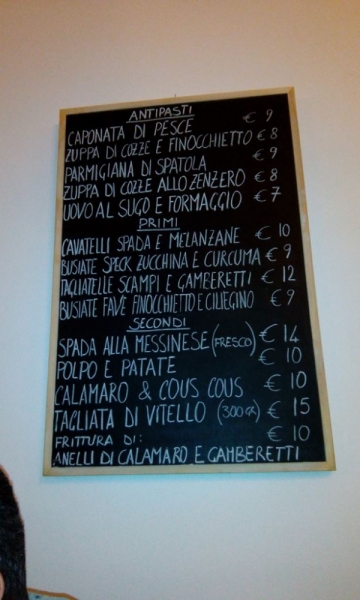 ANTIPASTI
CAPONATA DI PESCE € 9
ZUPPA DI COZZE E FINOCCHIETTO € 8
PARMIGIANA DI SPATOLA € 9
ZUPPA DI COZZE ALLO ZENZERO € 8
UOVO AL SUGO E FORMAGGIO € 7
PRIMI
CAVATELLI SPADA E MELANZANE € 10
BUSIATE SPECK ZUCCHINA E CURCUMA € 9
TAGLIATELLE SCAMPI E GAMBERETTI € 12
BUSIATE FAVE FINOCCHIETTO E CILIEGINO € 9
SECONDI
SPADA ALLA MESSINESE (FRESCO) € 14
POLPO E PATATE € 10
CALAMARO & COUS COUS € 10
TAGLIATA DI VITELLO (300GR) € 15
FRITTURA DI: € 10
ANELLI DI CALAMARO E GAMBERETTI